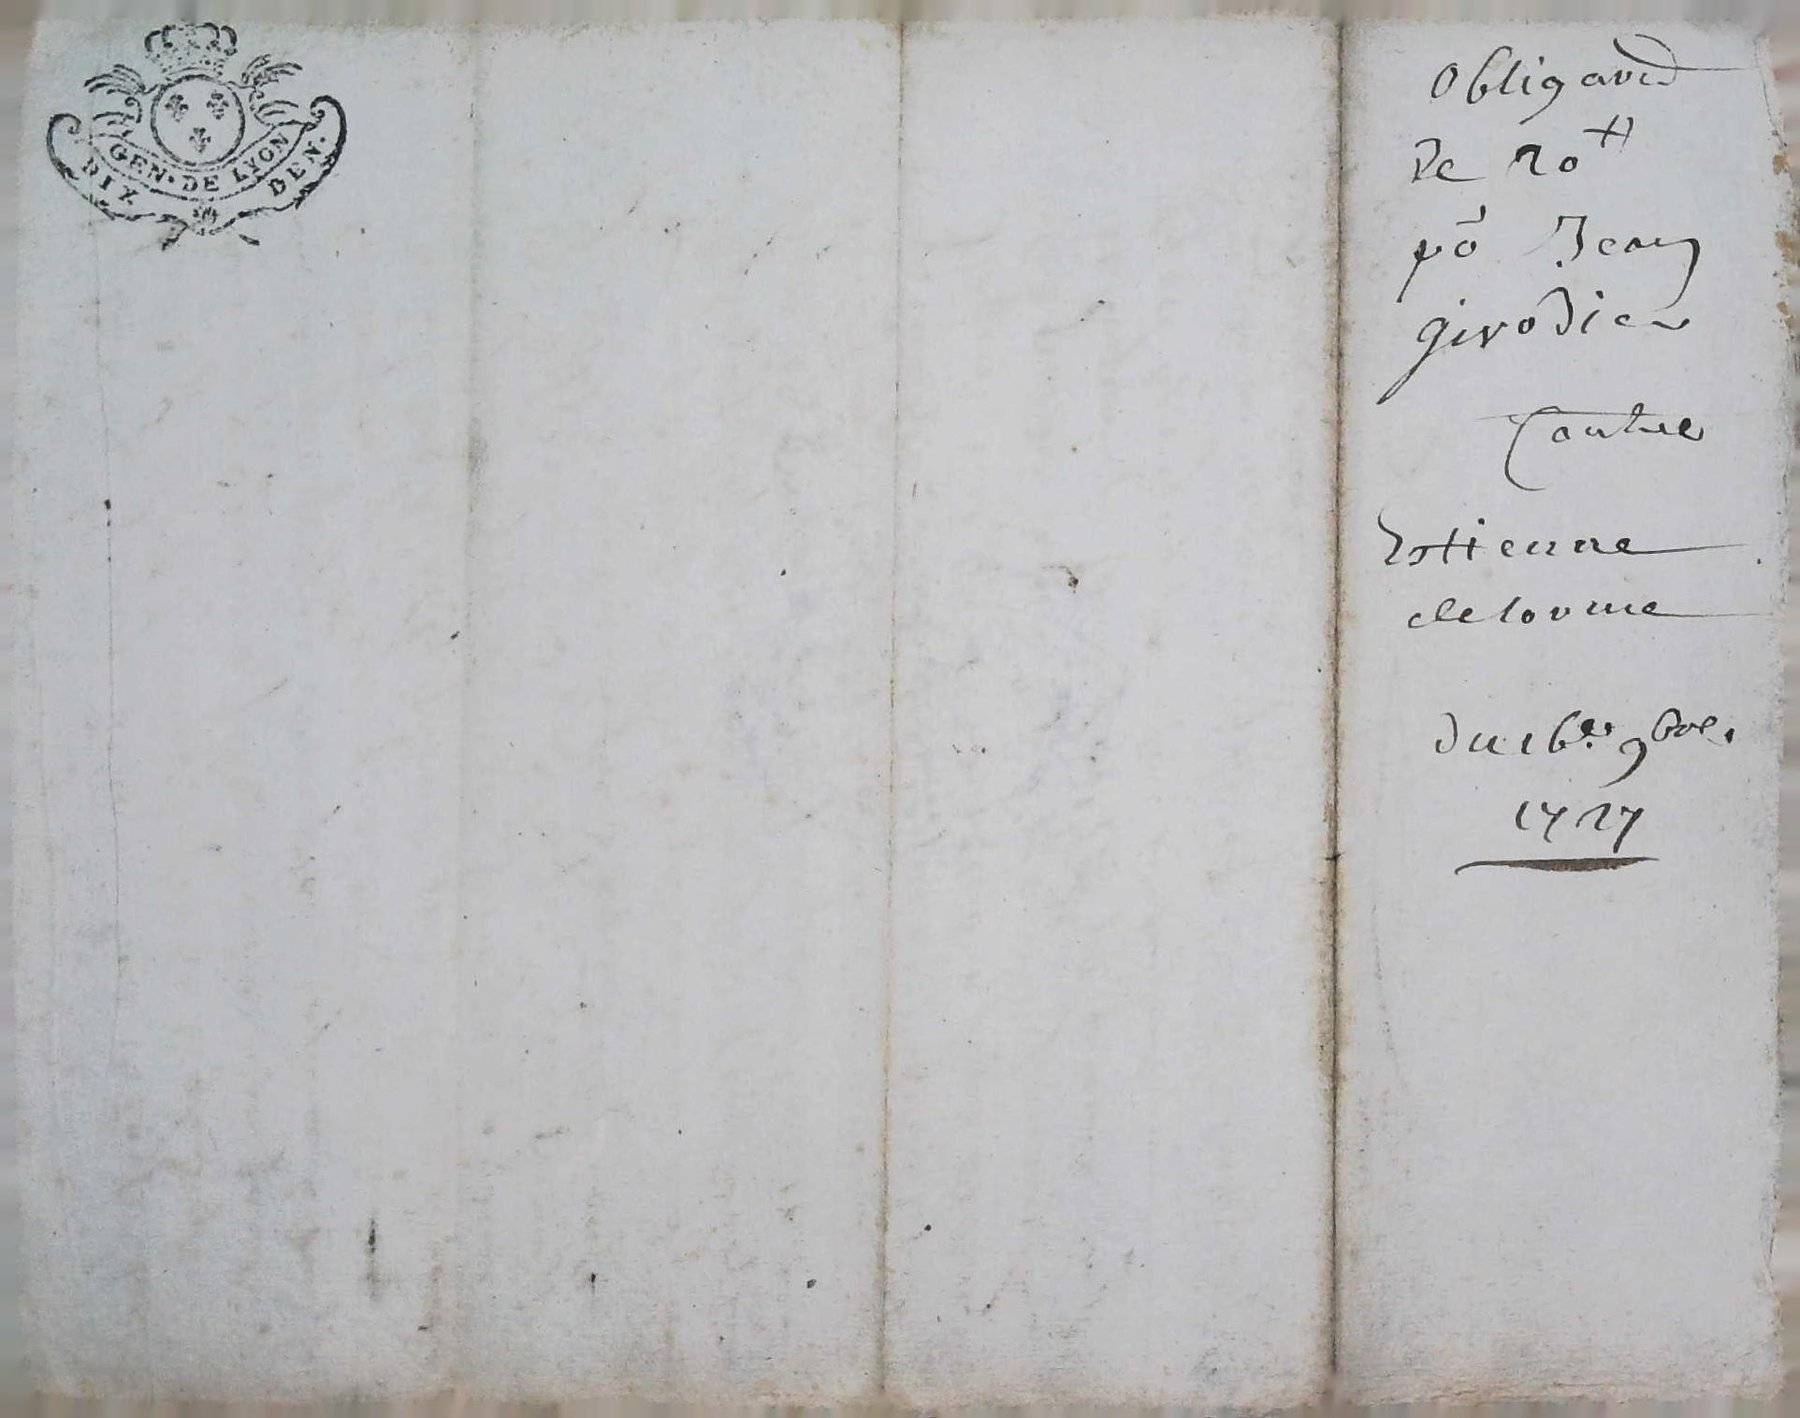 GEN. DE LYON
DIX DEN.
Obligaõn
De 20 ₶
po Jean
girodier
Contre
Estienne
delorme
Du 16e 9bre.
1727